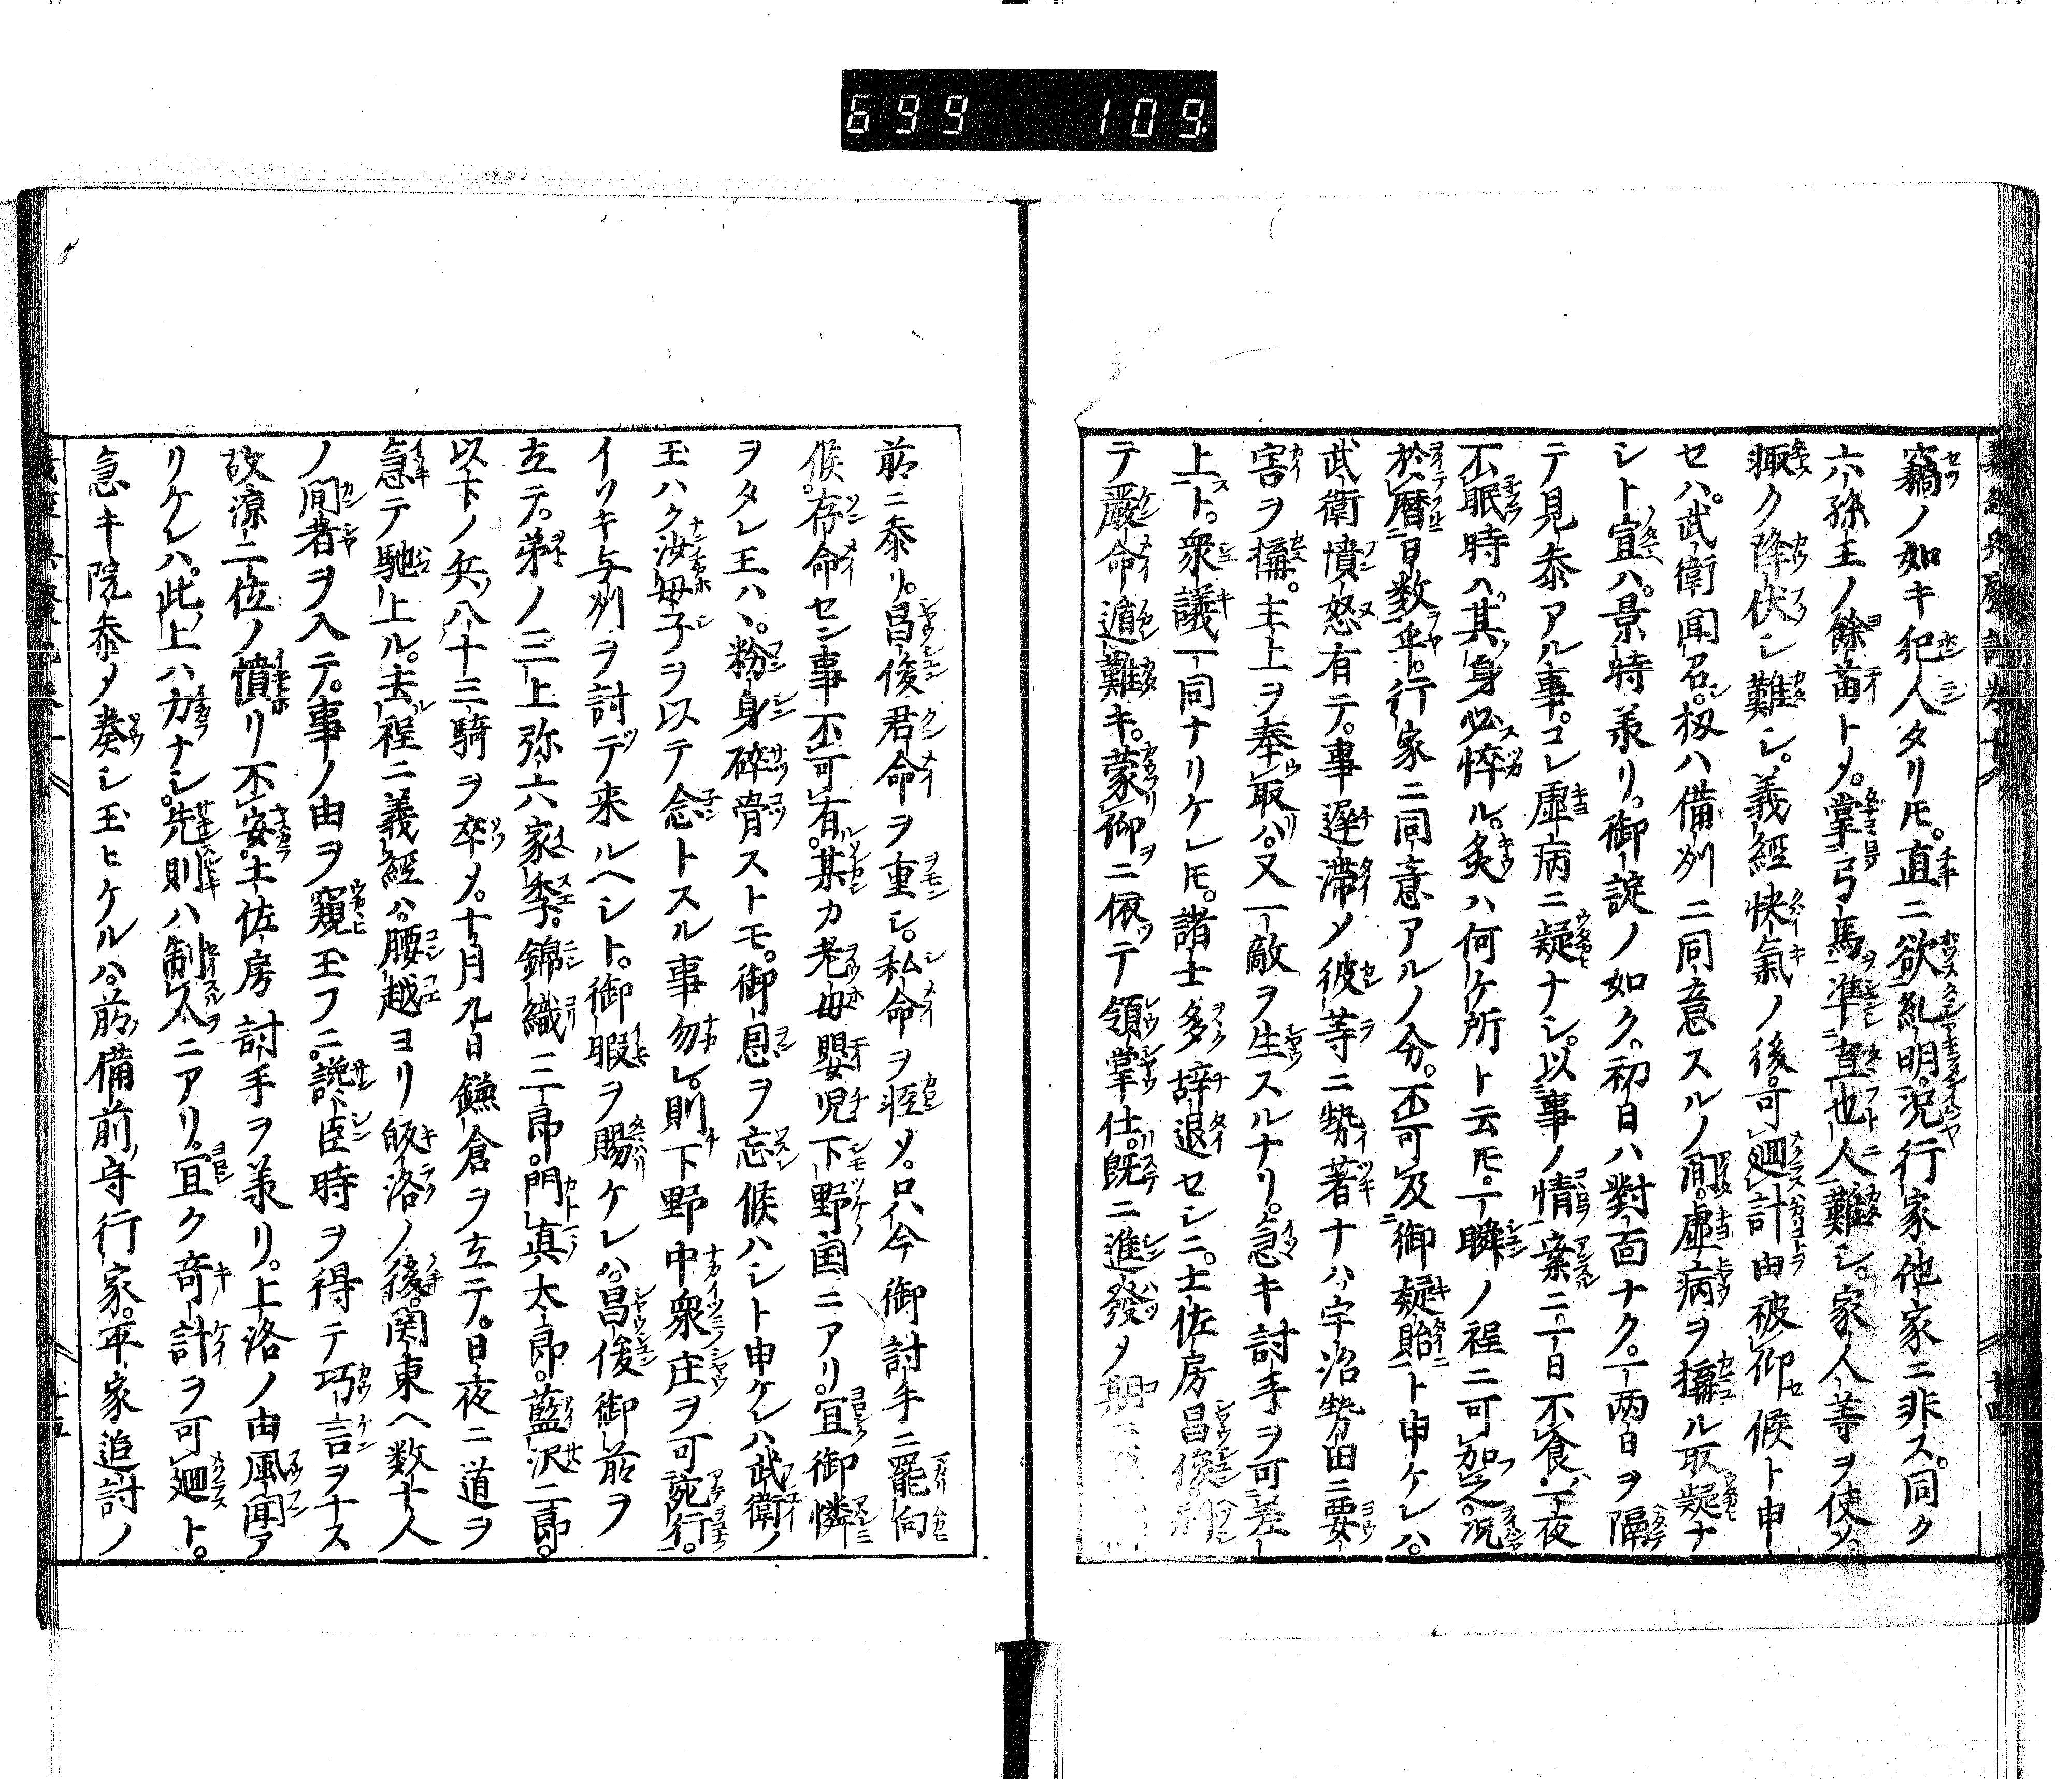 699 109
竊ノ如キ犯人タリ𪜈。直ニ欲糺明。況行家他家ニ非ス。同ク
六孫王ノ餘苗トメ。掌弓馬准直也人難シ。家人等ヲ使メ。
輙ク降伏シ難シ。義經快氣ノ後。可廻計由被仰候ト申
セハ。武衛聞召。扨ハ備州ニ同意スルノ間。虚病ヲ搆ル取疑ナ
シト宣ハ。景時羕リ。御諚ノ如ク。初日ハ對面ナク。一両日ヲ隔
テ見參アル事。コレ虚病ニ疑ナシ。以事ノ情案ニ一日不食一夜
不眠時ハ。其身必悴ル。灸ハ何ケ所ト云𪜈。一瞬ノ程ニ可加之。況
於暦日数乎。行家ニ同意アルノ分。不可及御疑貽ト申ケレハ。
武衛憤怒有テ。事遅滞メ彼等ニ勢著ナハ宇治勢田ニ要
害ヲ搆。主上ヲ奉取ハ。又一敵ヲ生スルナリ。急キ討手ヲ可差
上ト。衆議一同ナリケレ𪜈。諸士多辞退セシニ。土佐房昌俊
テ嚴命遁難キ。蒙仰ニ依テ領掌仕。既ニ進發メ期
十四
前ニ參リ。昌俊君命ヲ重シ。私命ヲ軽メ。只今御討手ニ罷向
候。存命セン事不可有。某カ老母嬰児下野国ニアリ。宜御憐
ヲタレ玉ハヽ。粉身碎骨ストモ。御恩ヲ忘候ハシト申ケレハ武衛ノ
玉ハク汝母子ヲ以テ念トスル事勿レ。則下野中衆庄ヲ可宛行。
イソキ与州ヲ討デ来ルヘシト。御暇ヲ賜ケレハ。昌俊御前ヲ
立テ。弟ノ三上弥六家季。錦織三郎。門真太郎。藍沢二郎。
以下ノ兵八十三騎ヲ卒メ。十月九日鎌倉ヲ立テ。日夜ニ道ヲ
急テ馳上ル。去程ニ義經ハ。腰越ヨリ皈洛ノ後。関東ヘ数十人
ノ間者ヲ入テ。事ノ由ヲ窺玉フニ。讒臣時ヲ得テ巧言ヲナス
故源二位ノ憤リ不安。土佐房討手ヲ羕リ。上洛ノ由風聞ア
リケレハ。此上ハ力ナシ。先則ハ制人ニアリ。宜ク竒計ヲ可廻ト。
急キ院參メ奏シ玉ヒケルハ。前備前守行家。平家追討ノ